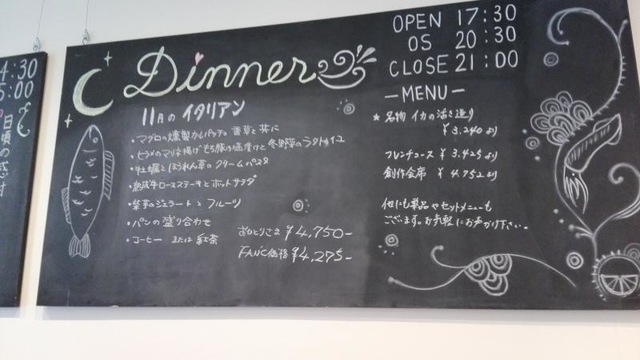 4:30
5:00
日頃の感謝
Dinner
11月の イタリアン
・マグロの燻製カルパッチョ 香草と共に
・ヒラメのマリネ揚げ
冬野菜のラタトゥイユ
・牡蠣とほうれん草のクリームパスタ
・熟成牛ローストステーキとホットサラダ
・紫芋のジェラートとフルーツ
・パンの盛り合わせ
・コーヒー または 紅茶
おひとりさま ¥4,750-
FANC価格 ¥4,275-
OPEN 17:30
OS 20:30
CLOSE 21:00
-MENU-
★ 名物 イカの活き造り
¥3,240より
フレンチコース ¥3,425より
創作会席 ¥4,752より
他にも単品やセットメニューも
ございます。お気軽にお声がけ下さい。